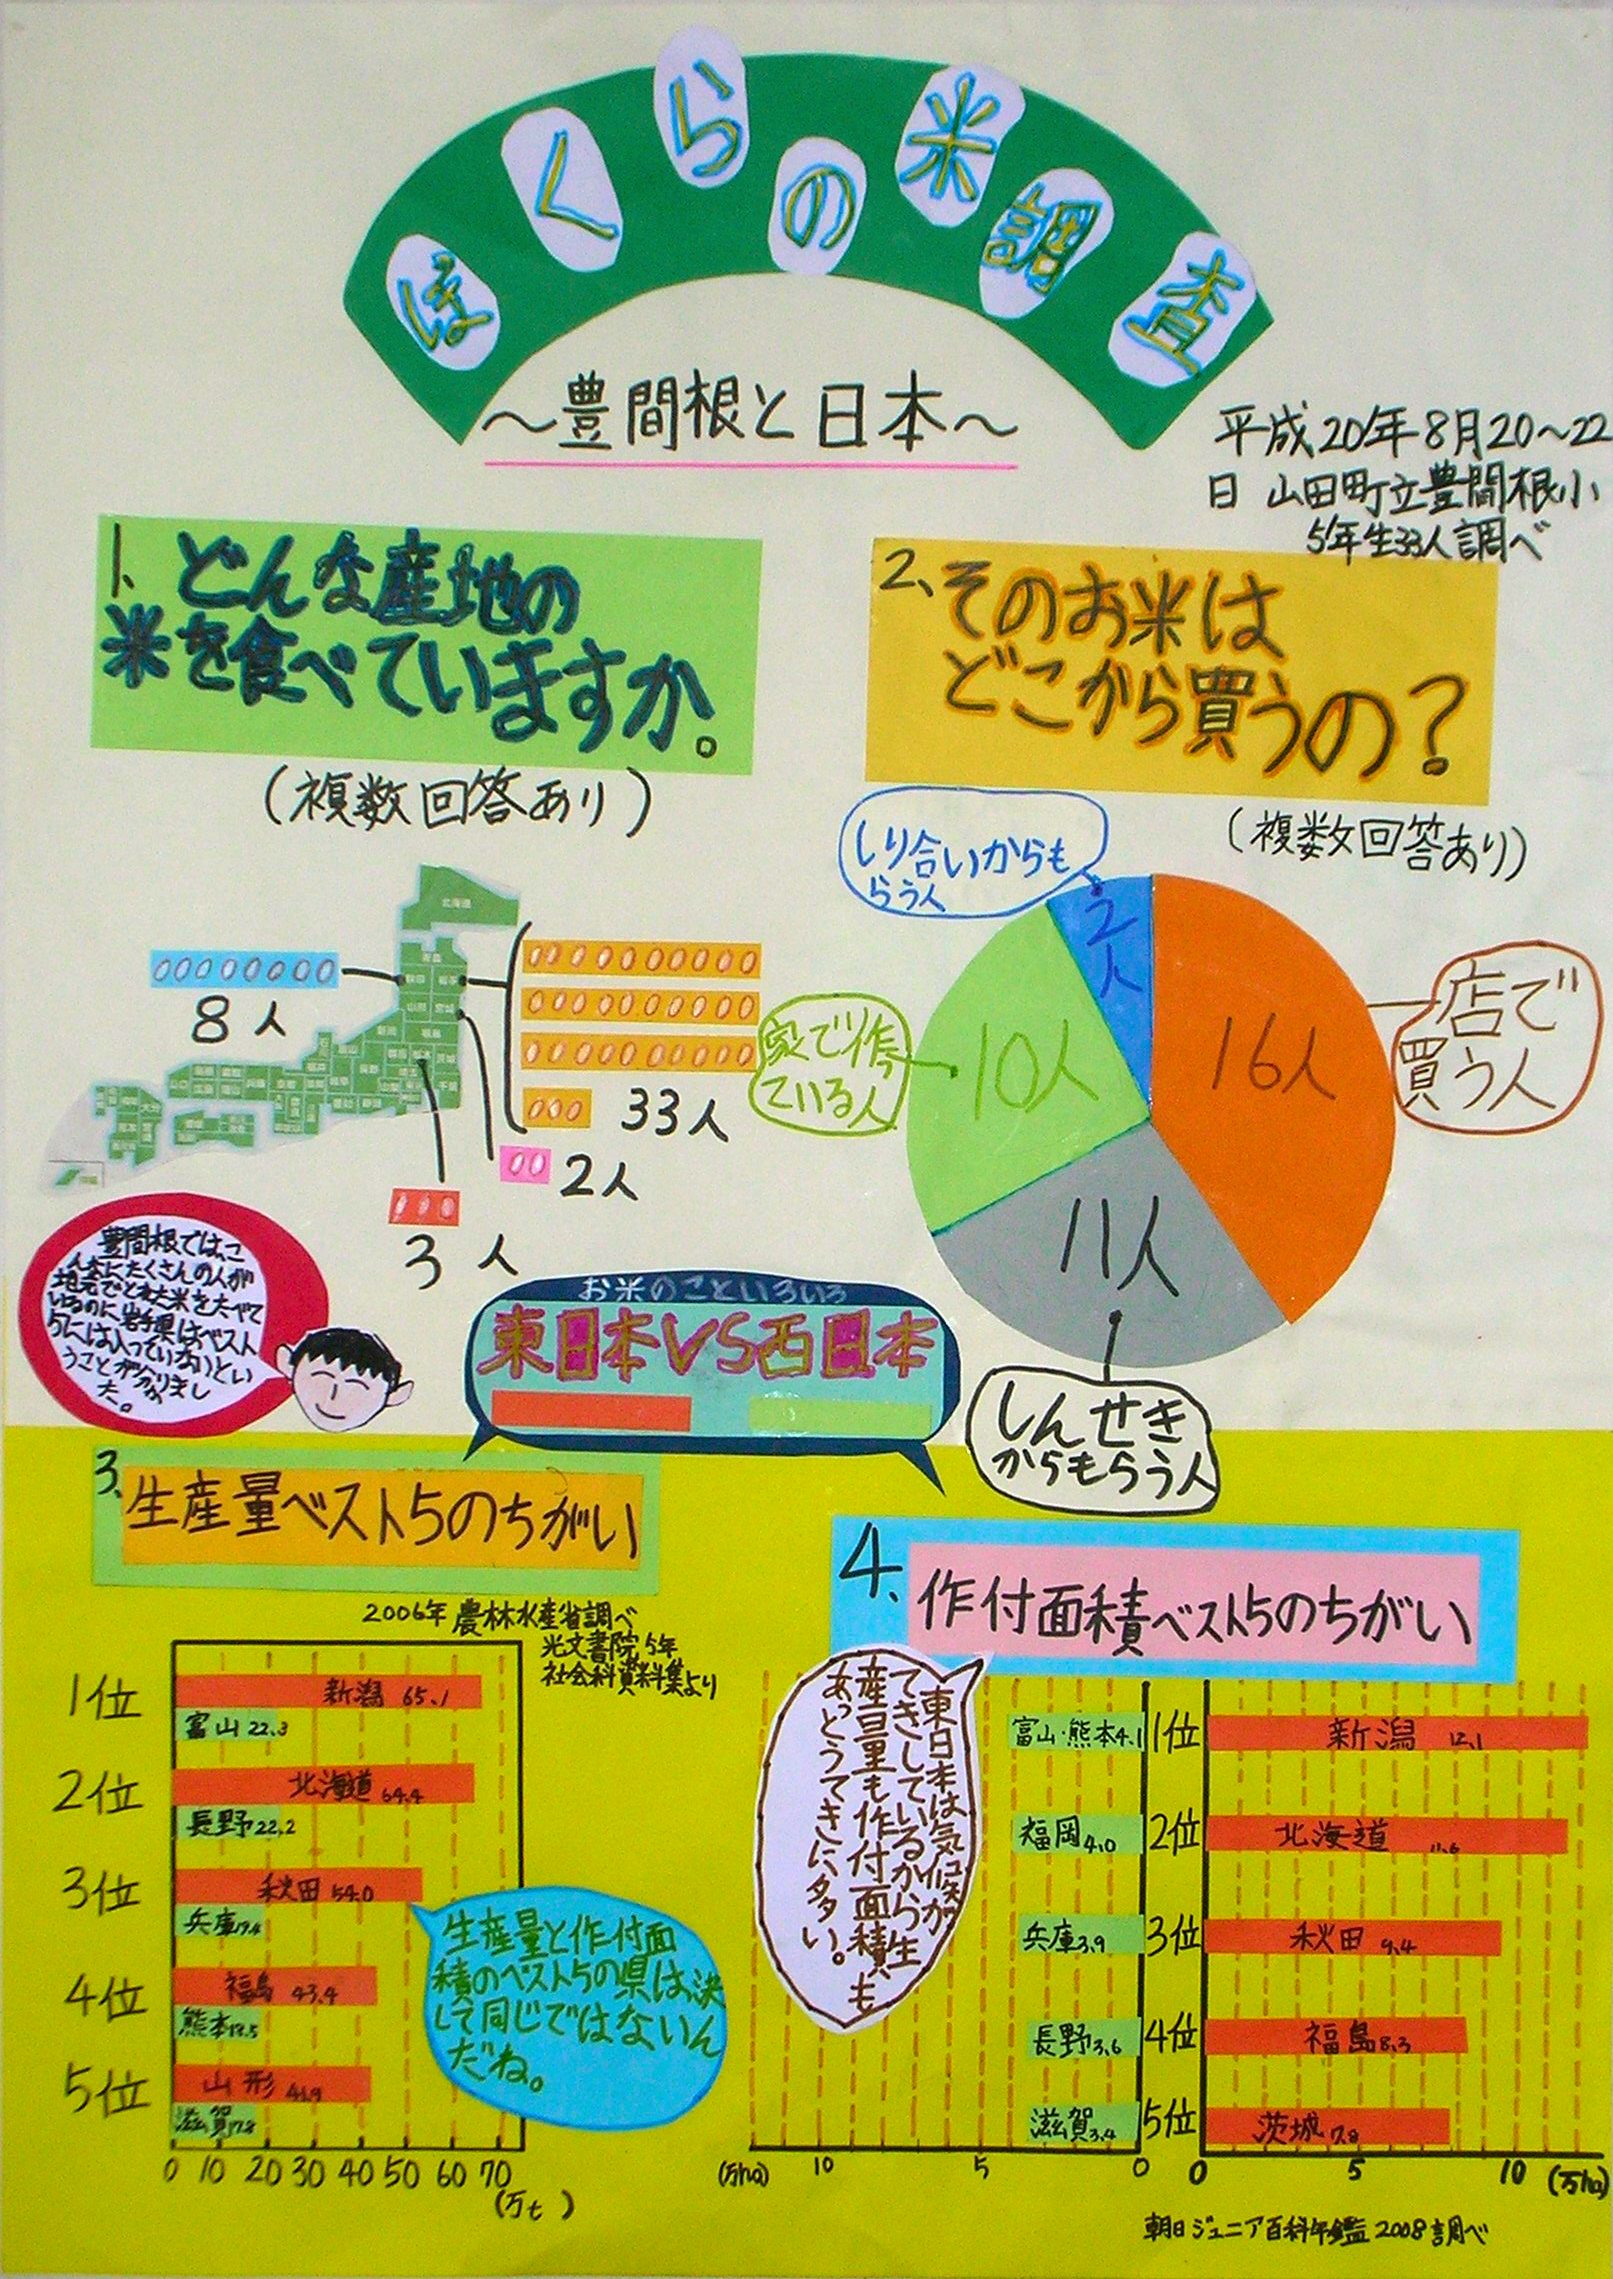 ぼくらの米調査
～豊間根と日本～
平成20年8月20～22
日 山田町立豊間根小
5年生33人調べ
1、どんな産地の
米を食べていますか。
(複数回答あり)
北海道
青森
秋田
岩手
山形
宮城
新潟
福島
8人
33人
2人
3人
豊間根では、こ
んなにたくさんの人が
地元でとれた米をたべて
いるのに岩手県はベスト
5には入っていないとい
うことが分かりまし
た。
2、そのお米は
どこから買うの？
(複数回答あり)
しり合いからも
らう人
2人
家で作っ
ている人
10人
16人
店で
買う人
11人
しんせき
からもらう人
お米のこといろいろ
東日本VS西日本
3、生産量ベスト5のちがい
2006年 農林水産省調べ
光文書院 5年
社会科資料集より
1位
新潟 65.1
富山 22.3
2位
北海道 64.4
長野 22.2
3位
秋田 54.0
兵庫19.4
4位
福島 43.4
熊本
5位
山形 41.9
滋賀17.8
0 10 20 30 40 50 60 70
(万t)
生産量と作付面
積のベスト5の県は決
して同じではないん
だね。
4、作付面積ベスト5のちがい
東日本は気候が
てきしているから生
産量も作付面積も
あっとうてきに多い。
富山・熊本4.1 1位 新潟 12.1
福岡4.0 2位 北海道 11.6
兵庫3.9 3位 秋田 9.4
長野3.6 4位 福島8.3
滋賀3.4 5位 茨城7.8
(万ha) 10 5 0 0 5 10 (万ha)
朝日ジュニア百科年鑑2008調べ